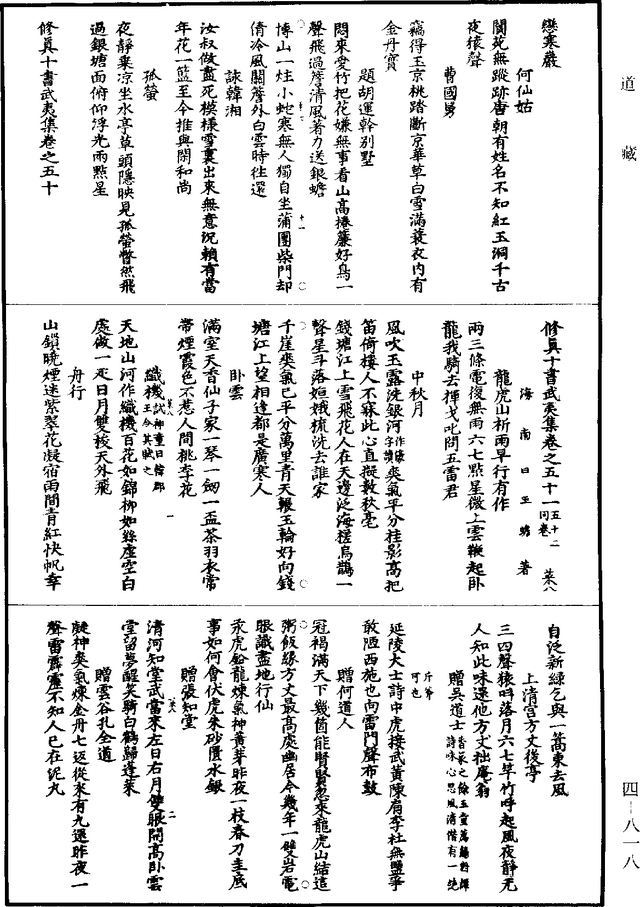 道藏
戀寒巖
何仙姑
閬苑無蹤跡唐朝有姓名不知紅玉洞千古
夜猿聲
曹國舅
竊得玉京桃踏斷京華草白雪滿蓑衣內有
金丹寶
題胡運幹別墅
悶來愛竹把花嫌無事看山高捲簾好鳥一
聲飛過岸清風著力送銀蟾
博山一炷小蛇寒無人獨自坐蒲團柴門却
倩冷風關簷外白雲時往還
詠韓湘
汝叔做盡死模樣雪裏出來無意況賴有當
年花一籃至今推與閑和尚
孤螢
夜靜乘凉坐水亭草頭隱映見孤螢瞥然飛
過銀塘面俯仰浮光兩點星
修真十書武夷集卷之五十
修真十書武夷集卷之五十一五十二同卷 菜八
海南白玉蟾著
龍虎山祈雨早行有作
兩三條電復無雨六七點星微上雲鞭起臥
龍我騎去揮戈叱問五雷君
中秋月
風吹玉露洗銀河爽氣平分桂影高把
笛倚樓人不寐此心直擬數秋毫
錢塘江上雪飛花人在天邊泛海槎烏鵲一
聲星斗落姮娥梳洗去誰家
千崖爽氣已平分萬里青天輾玉輪好向錢
塘江上望相逢都是廣寒人
臥雲
滿室天香仙子家一琴一劒一盃茶羽衣常
帶煙霞色不惹人間桃李花
織機
天地山河作織機百花如錦柳如絲虛空白
處做一疋日月雙梭天外飛
舟行
山鎖曉煙迷紫翠花凝宿雨間青紅快帆幸
自泛新綠乞與一篙東去風
上清宮方丈後亭
三四聲猿呌落月六七竿竹呼起風夜靜无
人知此味還他方丈拙庵翁
贈吳道士
延陵大士詩中虎接武黃陳肩李杜無鹽爭
敢陋西施也向雷門聲布鼓
贈何道人
冠褐滿天下幾箇能腎腎忽來龍虎山結這
粥飯緣方丈最高處幽居今幾年一雙岩電
眼識盡地行仙
汞虎鉛龍煉氣神黃芽昨夜一枝春刀圭底
事如何會伏虎朱砂匱水銀
贈張知堂
清河知堂武當來左日右月雙眼開高臥雲
堂留夢醒笑騎白鶴歸蓬萊
贈雲谷孔全道
凝神聚氣煉金丹七返從來有九還昨夜一
聲雷霹靂不知人已在泥丸
四-八一八